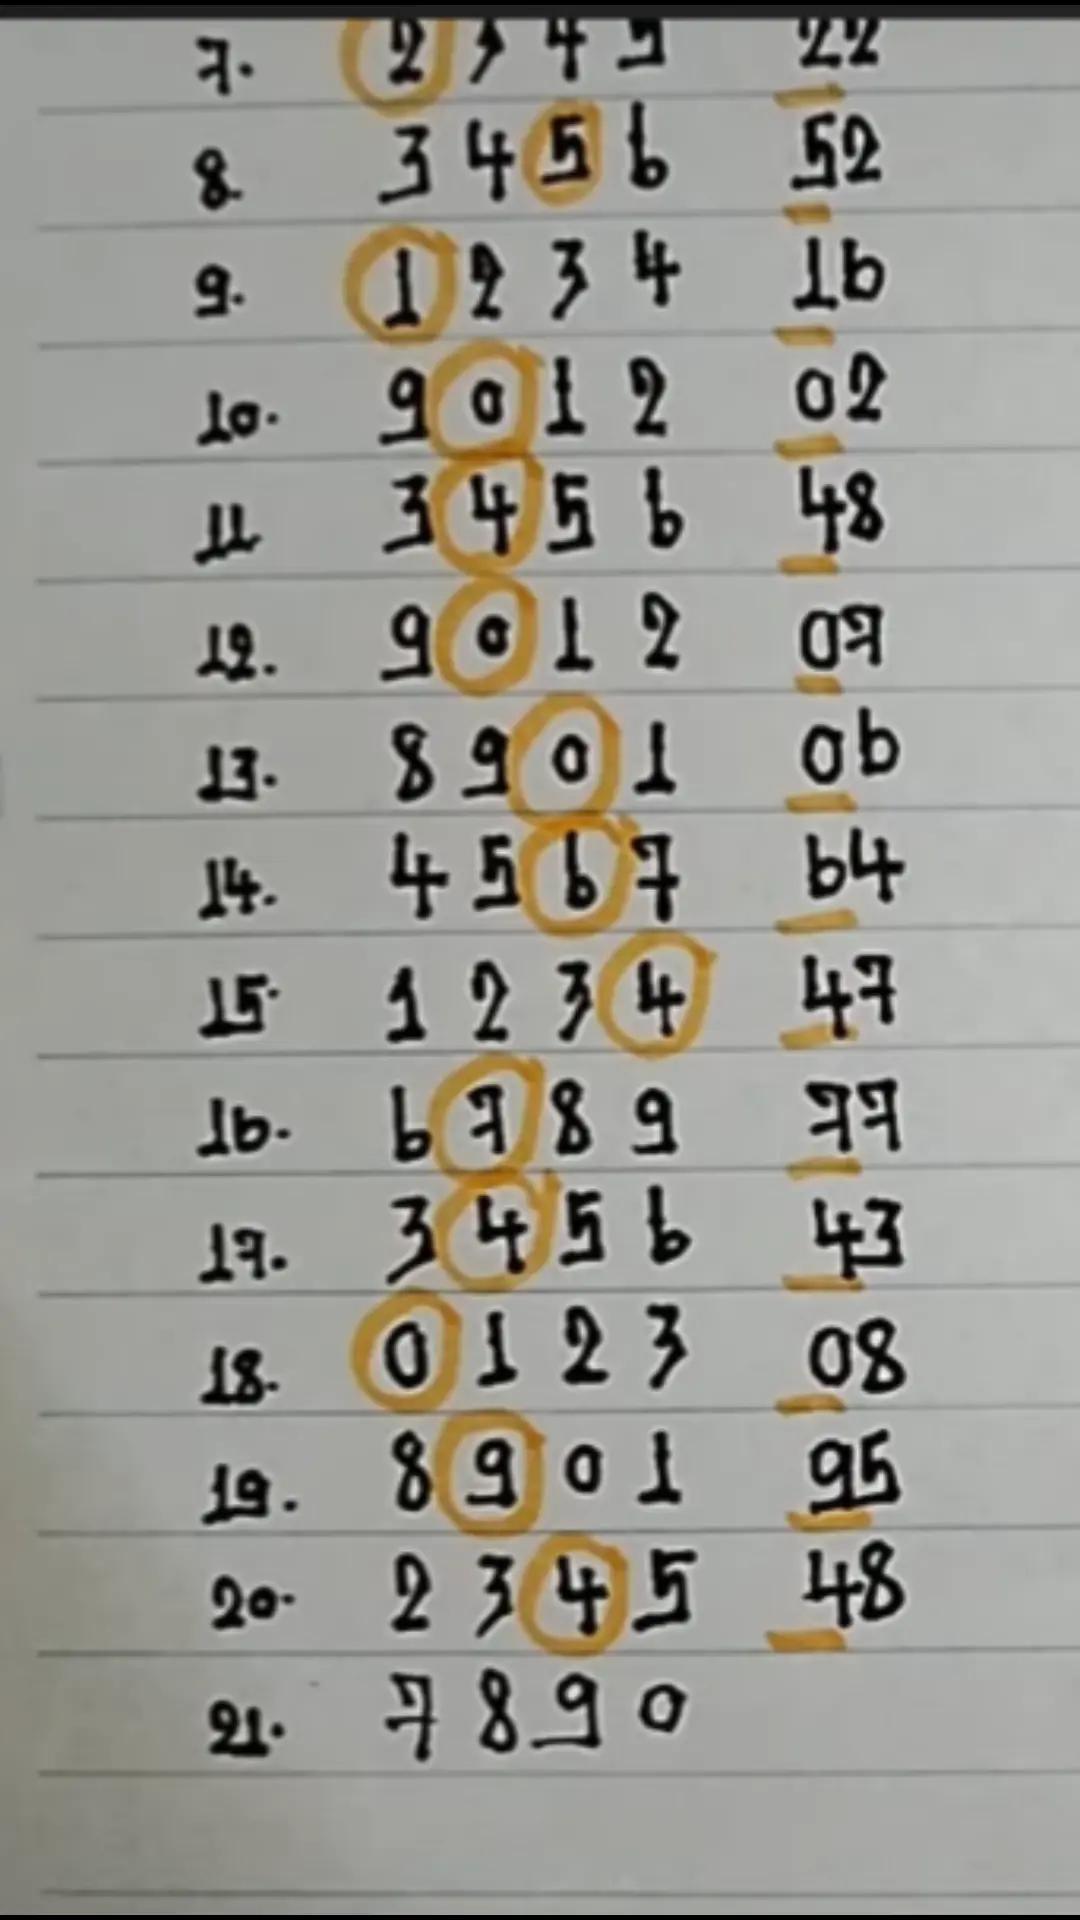 7. 2 3 4 5 22
8. 3 4 5 6 52
9. 1 2 3 4 16
10. 9 0 1 2 02
11 3 4 5 6 48
12. 9 0 1 2 07
13. 8 9 0 1 06
14. 4 5 6 7 64
15. 1 2 3 4 47
16. 6 7 8 9 77
17. 3 4 5 6 43
18. 0 1 2 3 08
19. 8 9 0 1 95
20. 2 3 4 5 48
21. 7 8 9 0